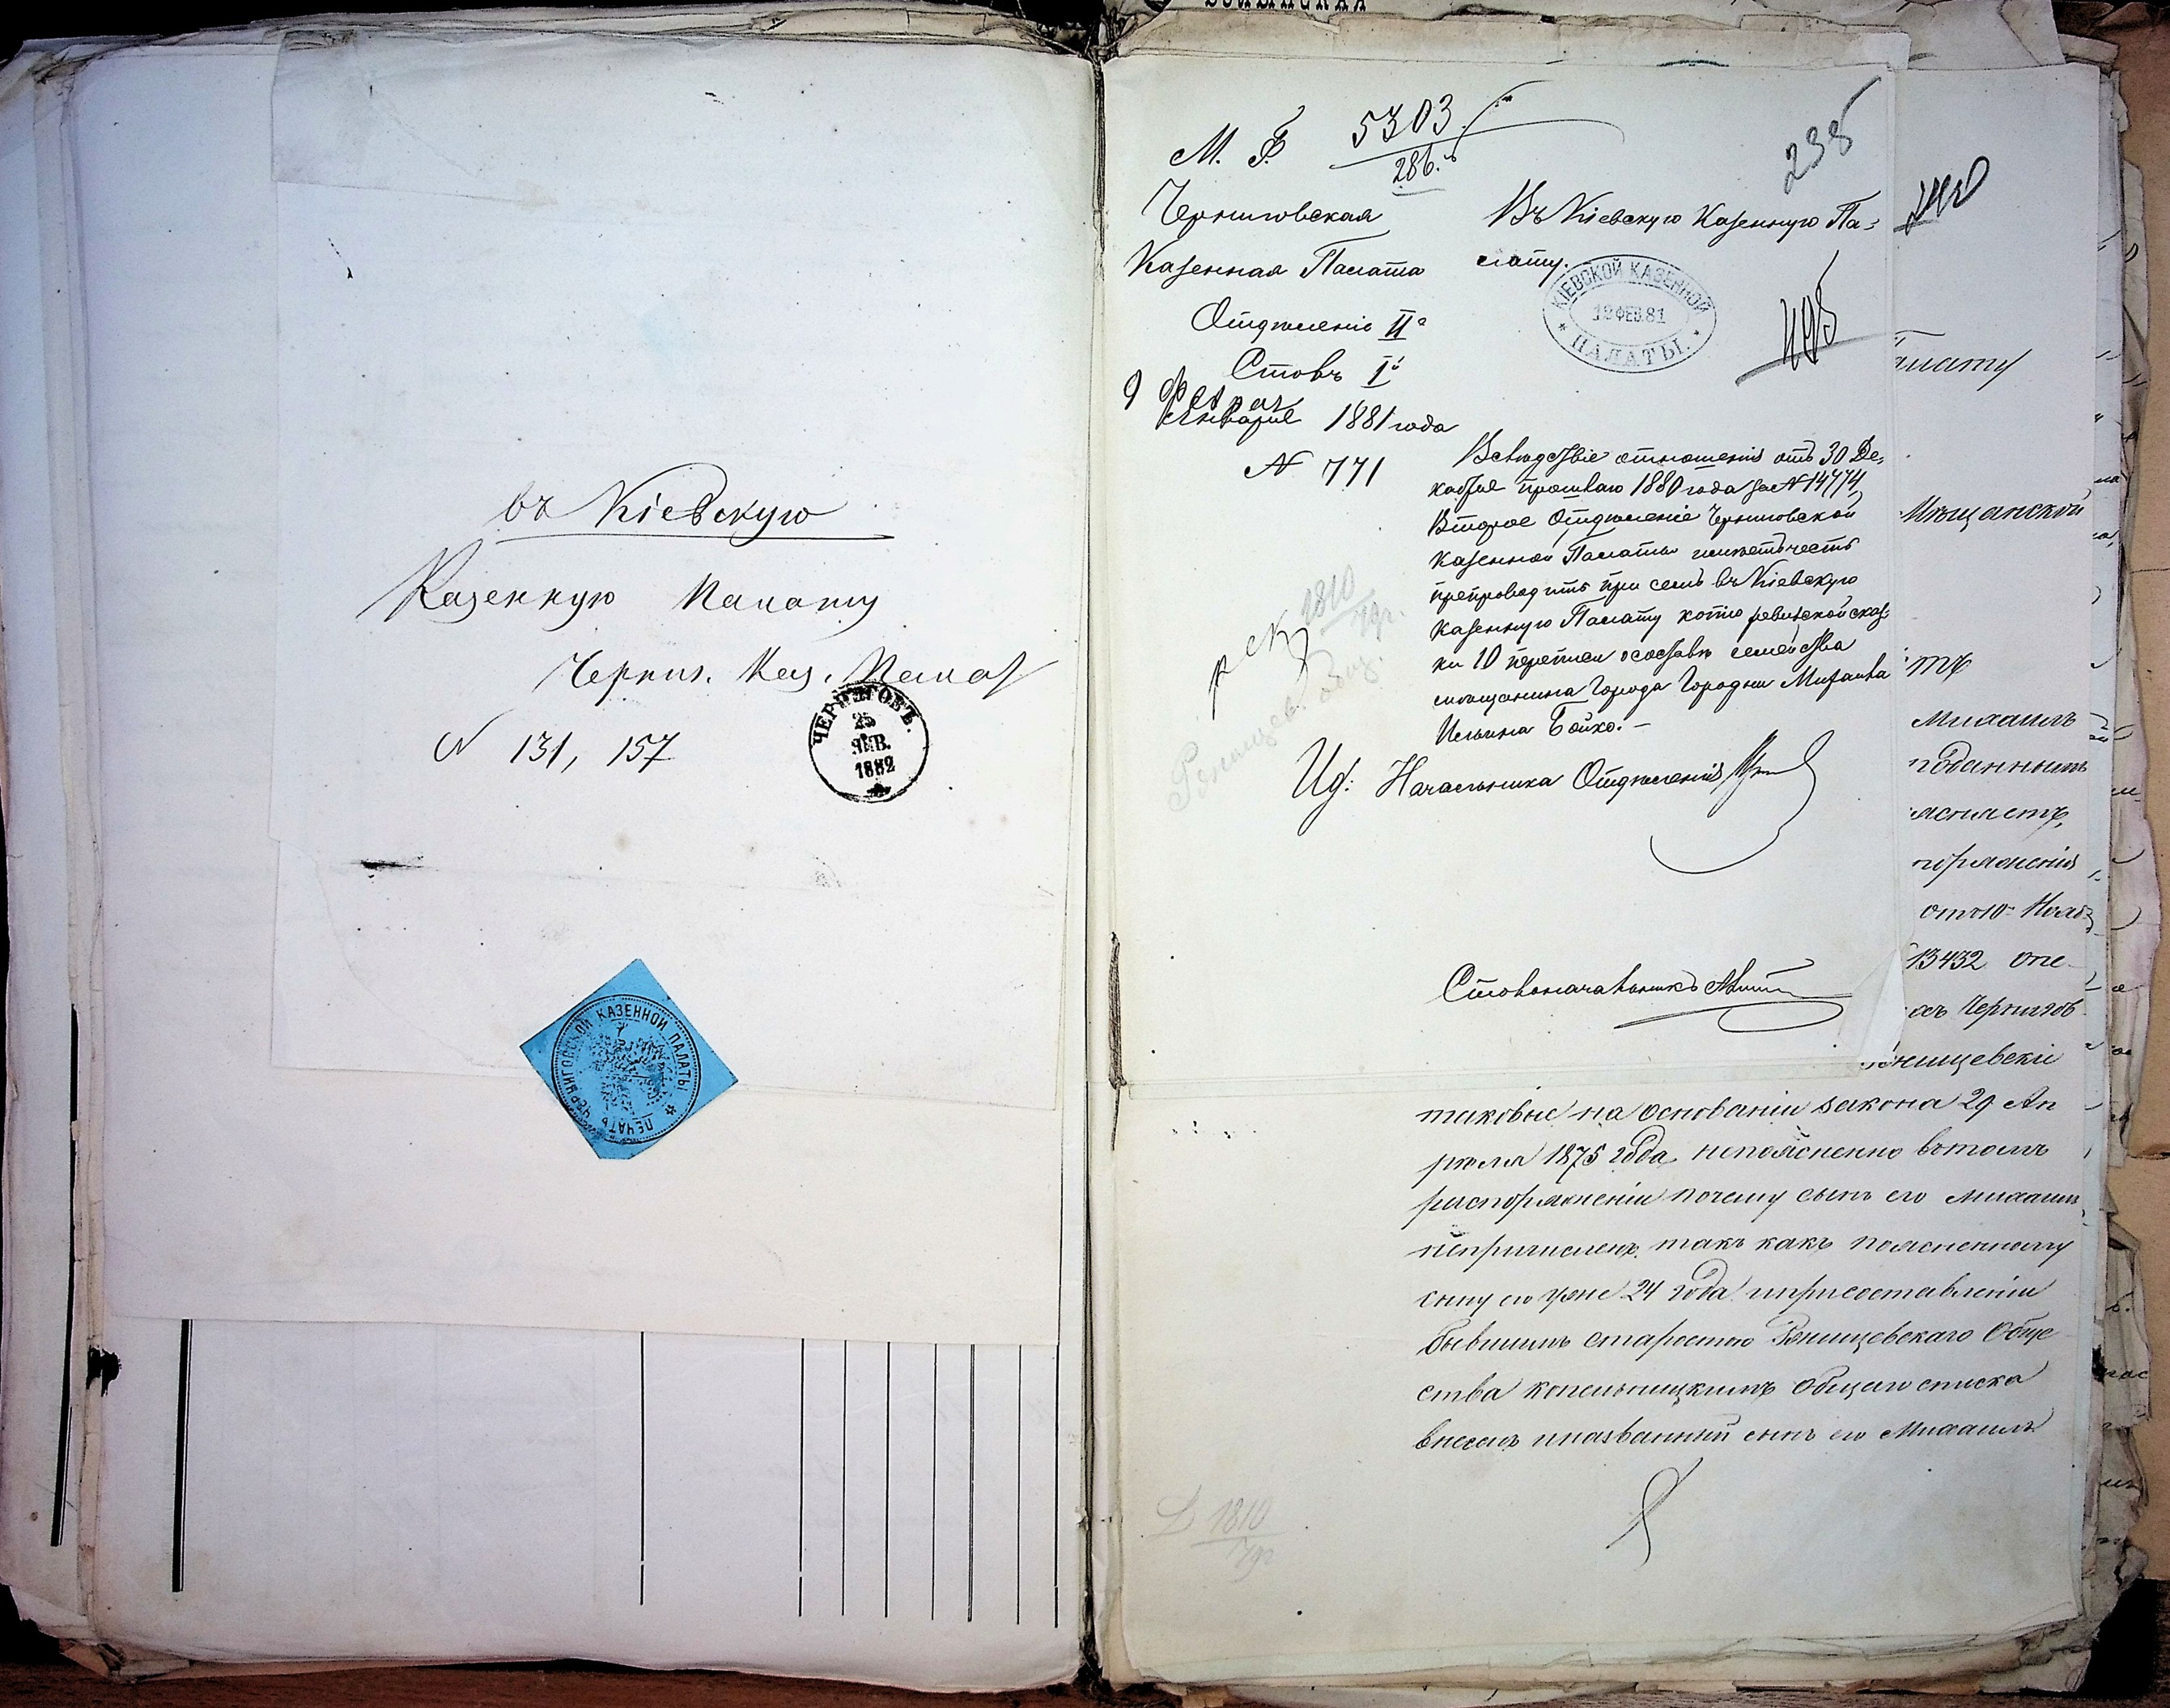 въ Кіевскую
Казенную Палату
Черниг. Каз. Палат
N 131, 157
ЧЕРНИГОВЪ.
25
ЯНВ.
1882
ПЕЧАТЬ ЧЕРНИГОВСКОЙ КАЗЕННОЙ ПАЛАТЫ
М. Ф.
5303
286.
238
Черниговская
Казенная Палата
Отдѣленіе II е
Столъ I й
9 Февраля
Января 1881 года
N 771
Въ Кіевскую Казенную Па-
лату.
КІЕВСКОЙ КАЗЕННОЙ
ФЕВ.81
ПАЛАТЫ.
Вслѣдствіе отношенія отъ 30 Де-
кабря прошлаго 1880 года за N 14774,
Второе Отдѣленіе Черниговской
Казенной Палаты имѣетъ честь
препроводить при семъ въ Кіевскую
Казенную Палату копію ревизской сказ-
ки 10 переписи о составѣ семейства
мѣщанина Города Городни Михаила
Ильина Бойко.-
1810
Ржищев. общ.
Иѣ: Начальника Отдѣленія
Столоначальникъ
алату
Мѣщанской
Михаилъ
поданнымъ
ясняетъ,
поряженія
отъ 10 Нояб
13432 опе-
Чернигов
Ржищевскій
таковые на основаніи закона 29 Ап
рѣля 1875 года, непояснено въ томъ
распоряженіи почему сынъ его Михаилъ,
непричисленъ, такъ какъ поясненному
сыну его уже 24 года и при составленіи
бывшимъ старостою Ржищевскаго Обще
ства Копельницкимъ общаго списка
внесенъ и названный сынъ его Михаилъ
1810